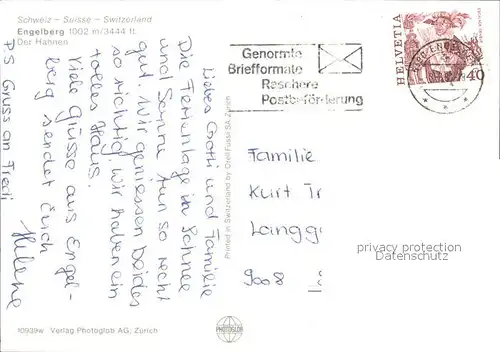 Schweiz – Suisse – Switzerland
Engelberg 1002 m/3444 ft.
Der Hahnen
Liebes Gotti und Familie
Die Ferientage in Schnee
und Sonne tun so recht
gut. Wir geniessen beides
so richtig, wir haben ein
tolles Haus.
Viele Grüsse aus Engel-
berg sendet Euch
Helene
P.S Gruss an Fredi
10939w Verlag Photoglob AG, Zürich
Printed in Switzerland by Orell Füssli SA Zürich
PHOTOGLOB
Genormte
Briefformate
Raschere
Postbeförderung
HELVETIA
40
Familie
Kurt Tr
Langg
9008
privacy protection
Datenschutz